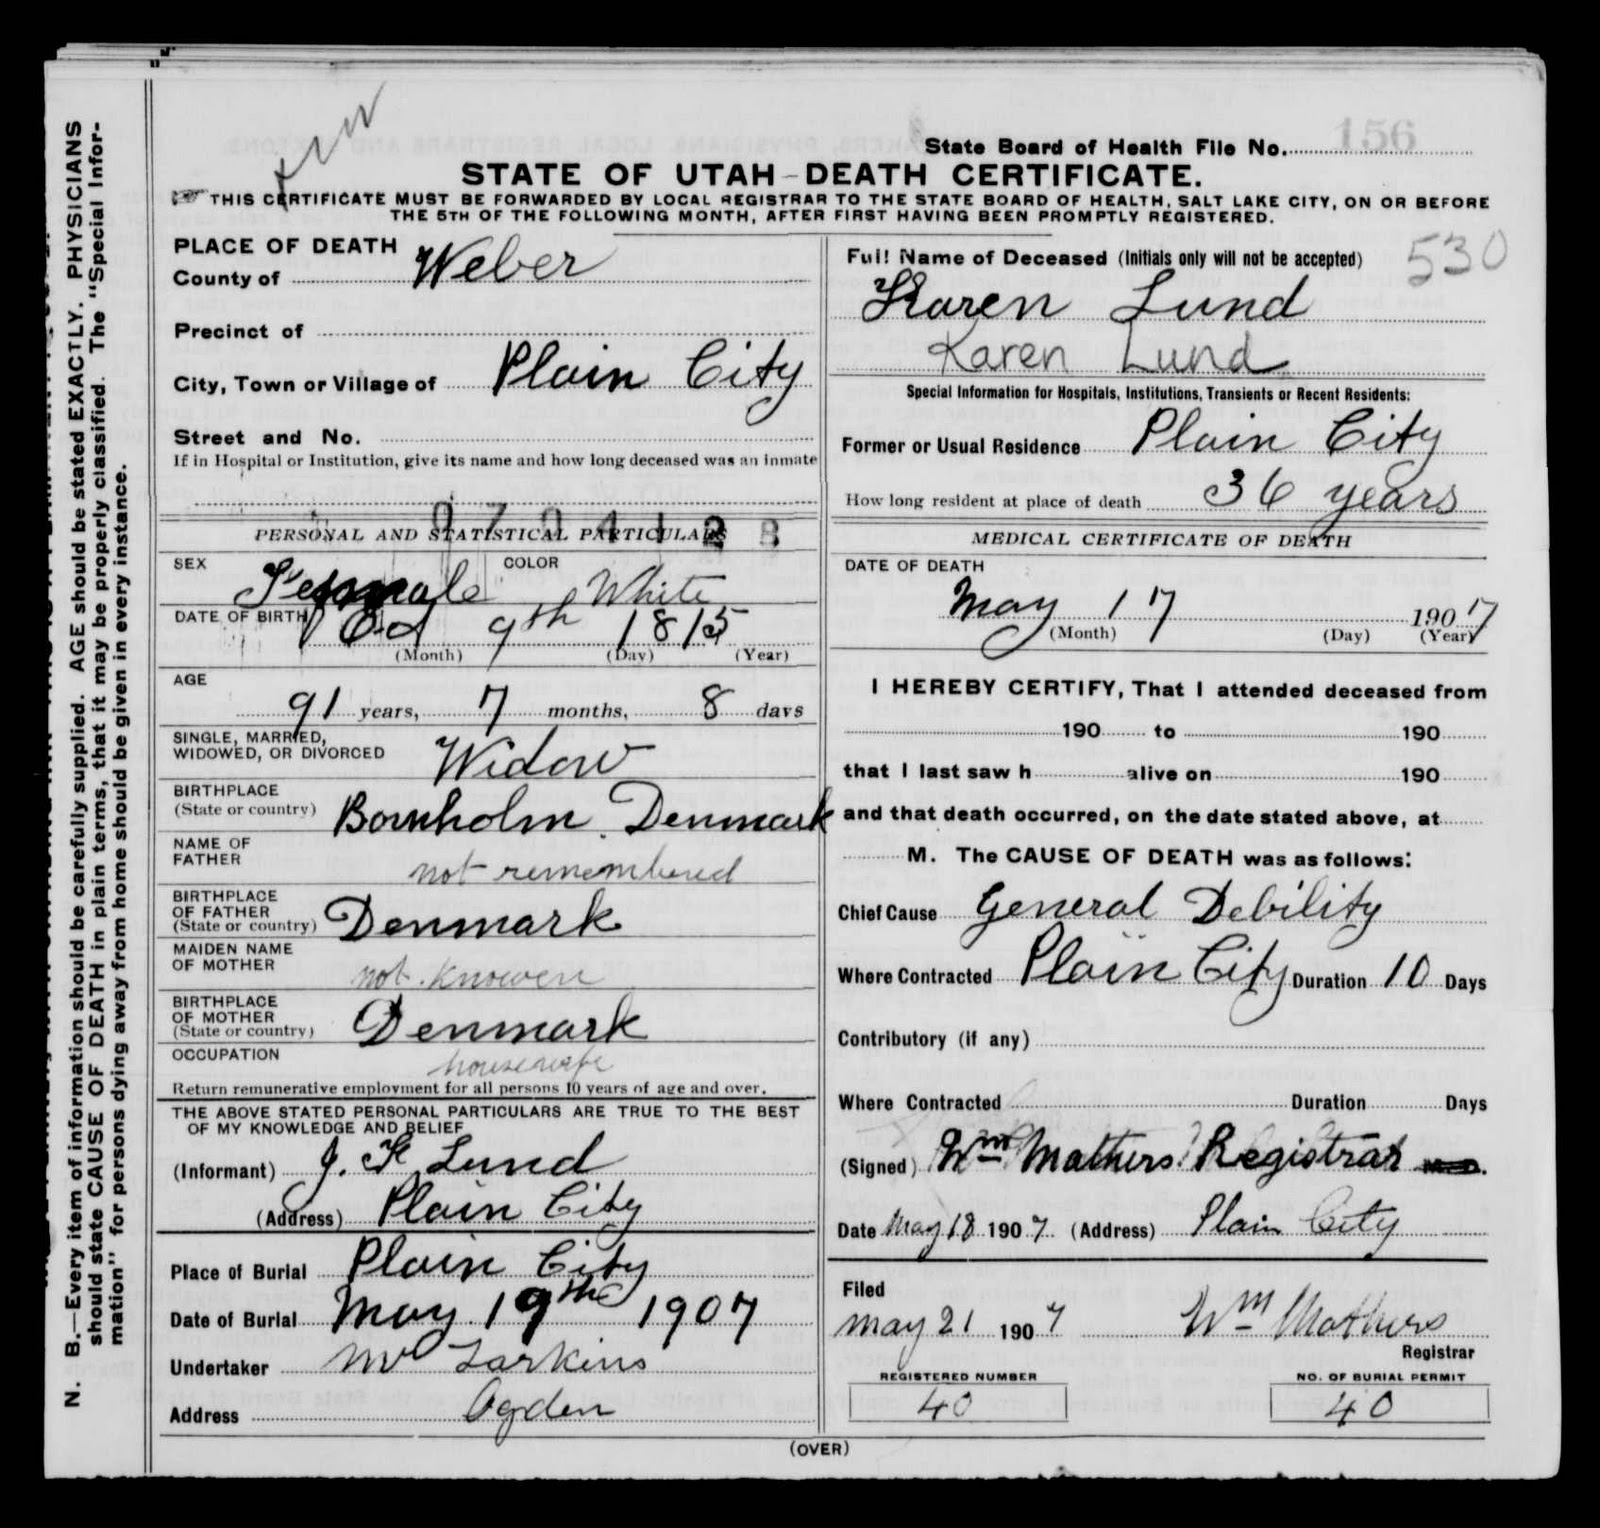 State Board of Health File No. 156
STATE OF UTAH-DEATH CERTIFICATE.
THIS CERTIFICATE MUST BE FORWARDED BY LOCAL REGISTRAR TO THE STATE BOARD OF HEALTH, SALT LAKE CITY, ON OR BEFORE
THE 5TH OF THE FOLLOWING MONTH, AFTER FIRST HAVING BEEN PROMPTLY REGISTERED.
PLACE OF DEATH
County of Weber
Precinct of
City, Town or Village of Plain City
Street and No.
If in Hospital or Institution, give its name and how long deceased was an inmate
PERSONAL AND STATISTICAL PARTICULARS
SEX Female COLOR White
DATE OF BIRTH Oct 9th 1815
(Month) (Day) (Year)
AGE
91 years, 7 months, 8 days
SINGLE, MARRIED,
WIDOWED, OR DIVORCED Widow
BIRTHPLACE
(State or country) Bornholm. Denmark
NAME OF
FATHER not remembered
BIRTHPLACE
OF FATHER
(State or country) Denmark
MAIDEN NAME
OF MOTHER not knowen
BIRTHPLACE
OF MOTHER
(State or country) Denmark
OCCUPATION housewife
Return remunerative employment for all persons 10 years of age and over.
THE ABOVE STATED PERSONAL PARTICULARS ARE TRUE TO THE BEST
OF MY KNOWLEDGE AND BELIEF
(Informant) Lund
(Address) Plain City
Place of Burial Plain City
Date of Burial May 19th 1907
Undertaker Larkins
Address Ogden
530
Full Name of Deceased (Initials only will not be accepted)
Karen Lund
Karen Lund
Special Information for Hospitals, Institutions, Transients or Recent Residents:
Former or Usual Residence Plain City
How long resident at place of death 36 years
MEDICAL CERTIFICATE OF DEATH
DATE OF DEATH
May 17 1907
(Month) (Day) (Year)
I HEREBY CERTIFY, That I attended deceased from
190 to 190
that I last saw h alive on 190
and that death occurred, on the date stated above, at
M. The CAUSE OF DEATH was as follows:
Chief Cause General Debility
Where Contracted Plain City Duration 10 Days
Contributory (if any)
Where Contracted Duration Days
(Signed) Wm Mathers Registrar
Date May 18 1907 (Address) Plain City
Filed
May 21 1907 Wm Mathers
Registrar
REGISTERED NUMBER NO. OF BURIAL PERMIT
40 40
(OVER)
N. B.—Every item of information should be carefully supplied. AGE should be stated EXACTLY. PHYSICIANS
should state CAUSE OF DEATH in plain terms, that it may be properly classified. The "Special Infor-
mation" for persons dying away from home should be given in every instance.